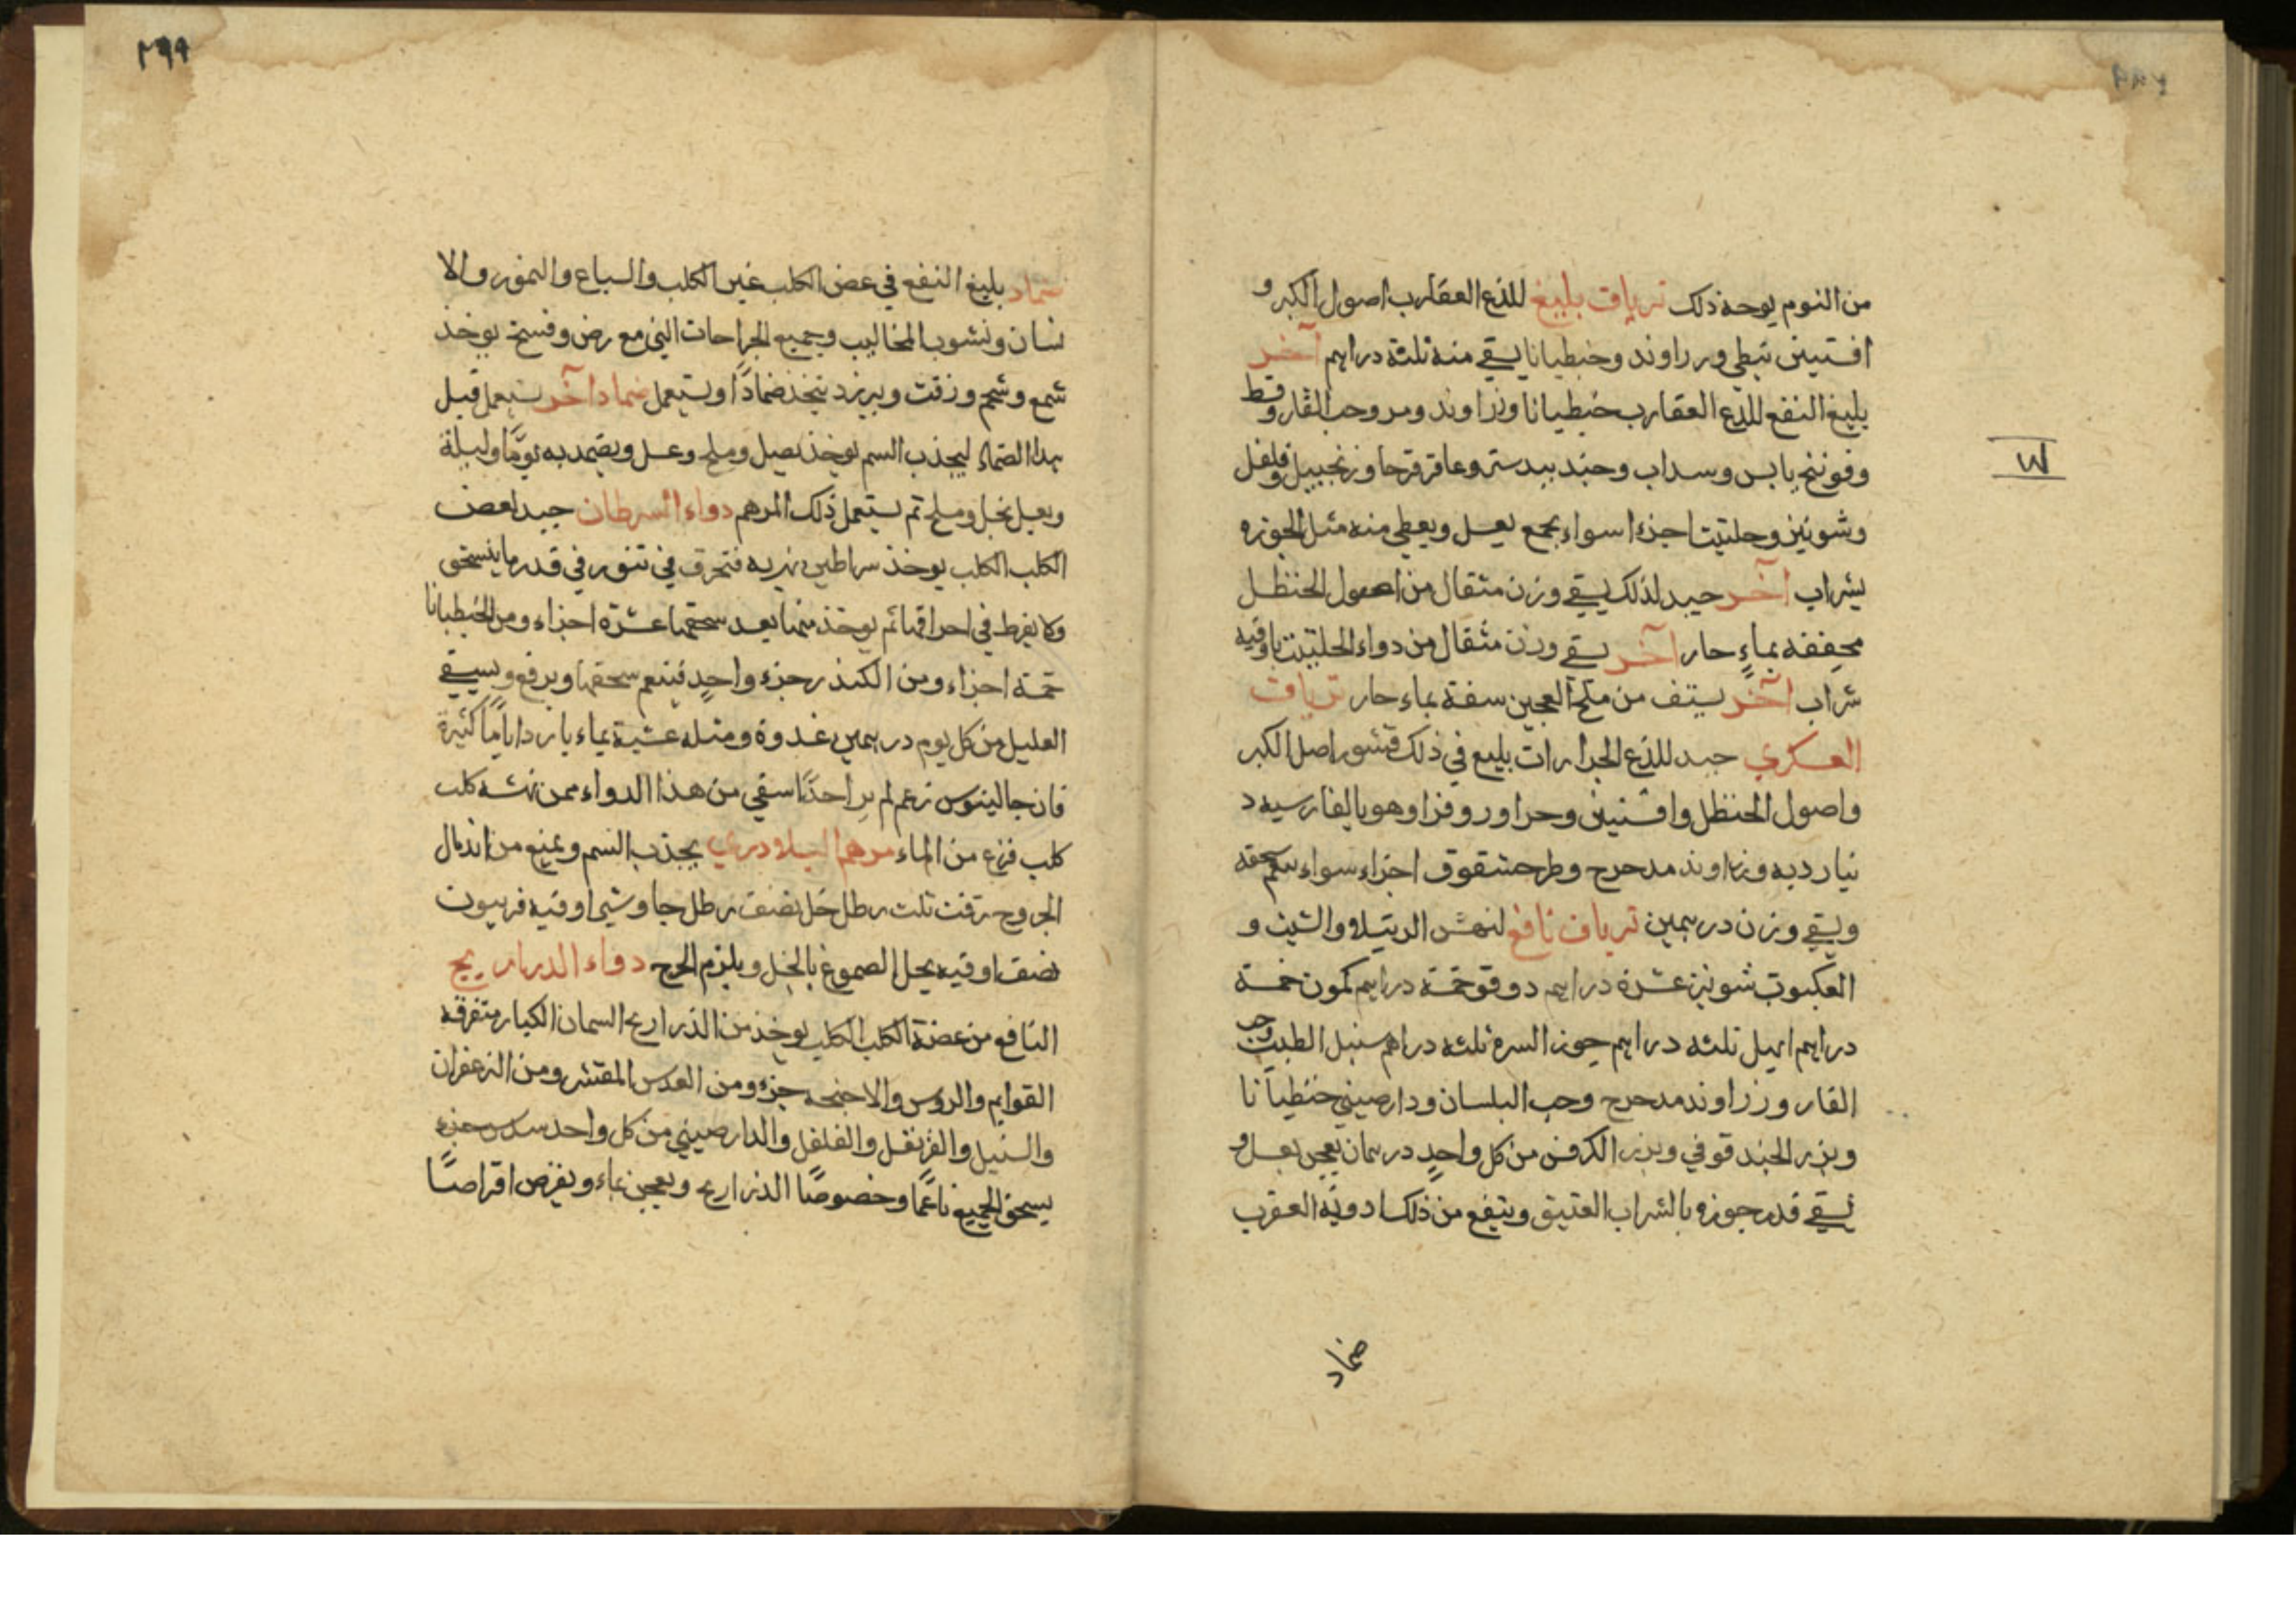 من النوم يوحذ ذلك ترياق بليغ للذع العقارب اصول الكبر و
افستين نبطي وزراوند وخنطيانا يسقي منه ثلثة دراهم آخر
بليغ النفع للذع العقارب خنطيانا وزراوند ومر وحب الغار وقسط
وفوتنج يابس وسداب وجند بيدستر وعاقر قرحا وزنجبيل وفلفل
وشونيز وحلتيت اجزء اسواء يجمع بعسل ويعطي منه مثل الجوزه
بشراب آخر جيد لذلك يسقي وزن مثقال من اصول الحنظل
مجففه بماءٍ حار آخر يسقي وزن مثقال من دواء الحلتيت باوقيه
شراب آخر يستف من ملح العجين سفة بماء حار ترياق
العسكري جيد للذع الجرارات بليغ في ذلك قشور اصل الكبر
واصول الحنظل وافسنتين وهو بالفارسيه د
وزراوند مدحرج وطرحشقوق اجزاء سواء
ويسقي وزن درهمين ترياق نافع لنهش الرتيلا والشبث و
العنكبوت شونيز عشرة دراهم دوقو خمسة دراهم كمون خمسة
دراهم ابهل ثلثه دراهم جوز السرو ثلثه دراهم سنبل الطيب حب
الغار وزراوند مدحرج وحب البلسان ودارصيني خنطيانا
وبزر الحندقوقي وبزر الكرفس من كل واحدٍ درهمان يعجن بعسل و
يسقي قدر جوزه بالشراب العتيق وينفع من ذلك ادوية العقرب
ضماد
٢٩٩
ضماد بليغ النفع في عض الكلب غير الكلب والسباع والنمور والا
نسان ونشوب المخاليب وجميع الجراحات التي مع رض وفسخ يوخذ
شمع وشحم وزفت وبيرزد يتخذ ضمادًا ويستعمل ضماد آخر يستعمل قبل
هذا الضماد ليجذب السم يوخذ بصل وملح وعسل ويضمد به يومًا وليلة
ويغسل بخل وملح ثم يستعمل ذلك المرهم دواء السرطان جيد لعض
الكلب الكلب يوخذ سراطين نهريه فتحرق في تنور في قدر ما ينسحق
ولا يفرط في احراقها ثم يوخذ منها بعد سحقها عشرة اجزاء ومن الخنطيانا
خمسة اجزاء ومن الكندر جزء واحدٍ فينعم سحقها ويرفع ويسقي
العليل من كل يوم درهمين غدوة ومثله عشية بماء بارد ايامًا كثيرة
فان جالينوس زعم لم ير احدًا سقي من هذا الدواء ممن نهشه كلب
كلب فزع من الماء مرهم البلادري يجذب السم ويمنع من اندمال
الجروح زفت ثلث رطل خل نصف رطل جاوشير اوقيه فربيون
نصف اوقيه يحل الصموغ بالخل ويلزم الجرح دواء الذراريح
النافع من عضة الكلب الكلب يوخذ من الذراريح السمان الكبار متفرقه
القوايم والروس والاجنحه جزء ومن العدس المقشر ومن الزعفران
والسنبل والقرنفل والفلفل والدارصيني من كل واحد سدس جزء
يسحق الجميع ناعمًا وخصوصًا الذراريح ويعجن بماء ويقرص اقراصًا